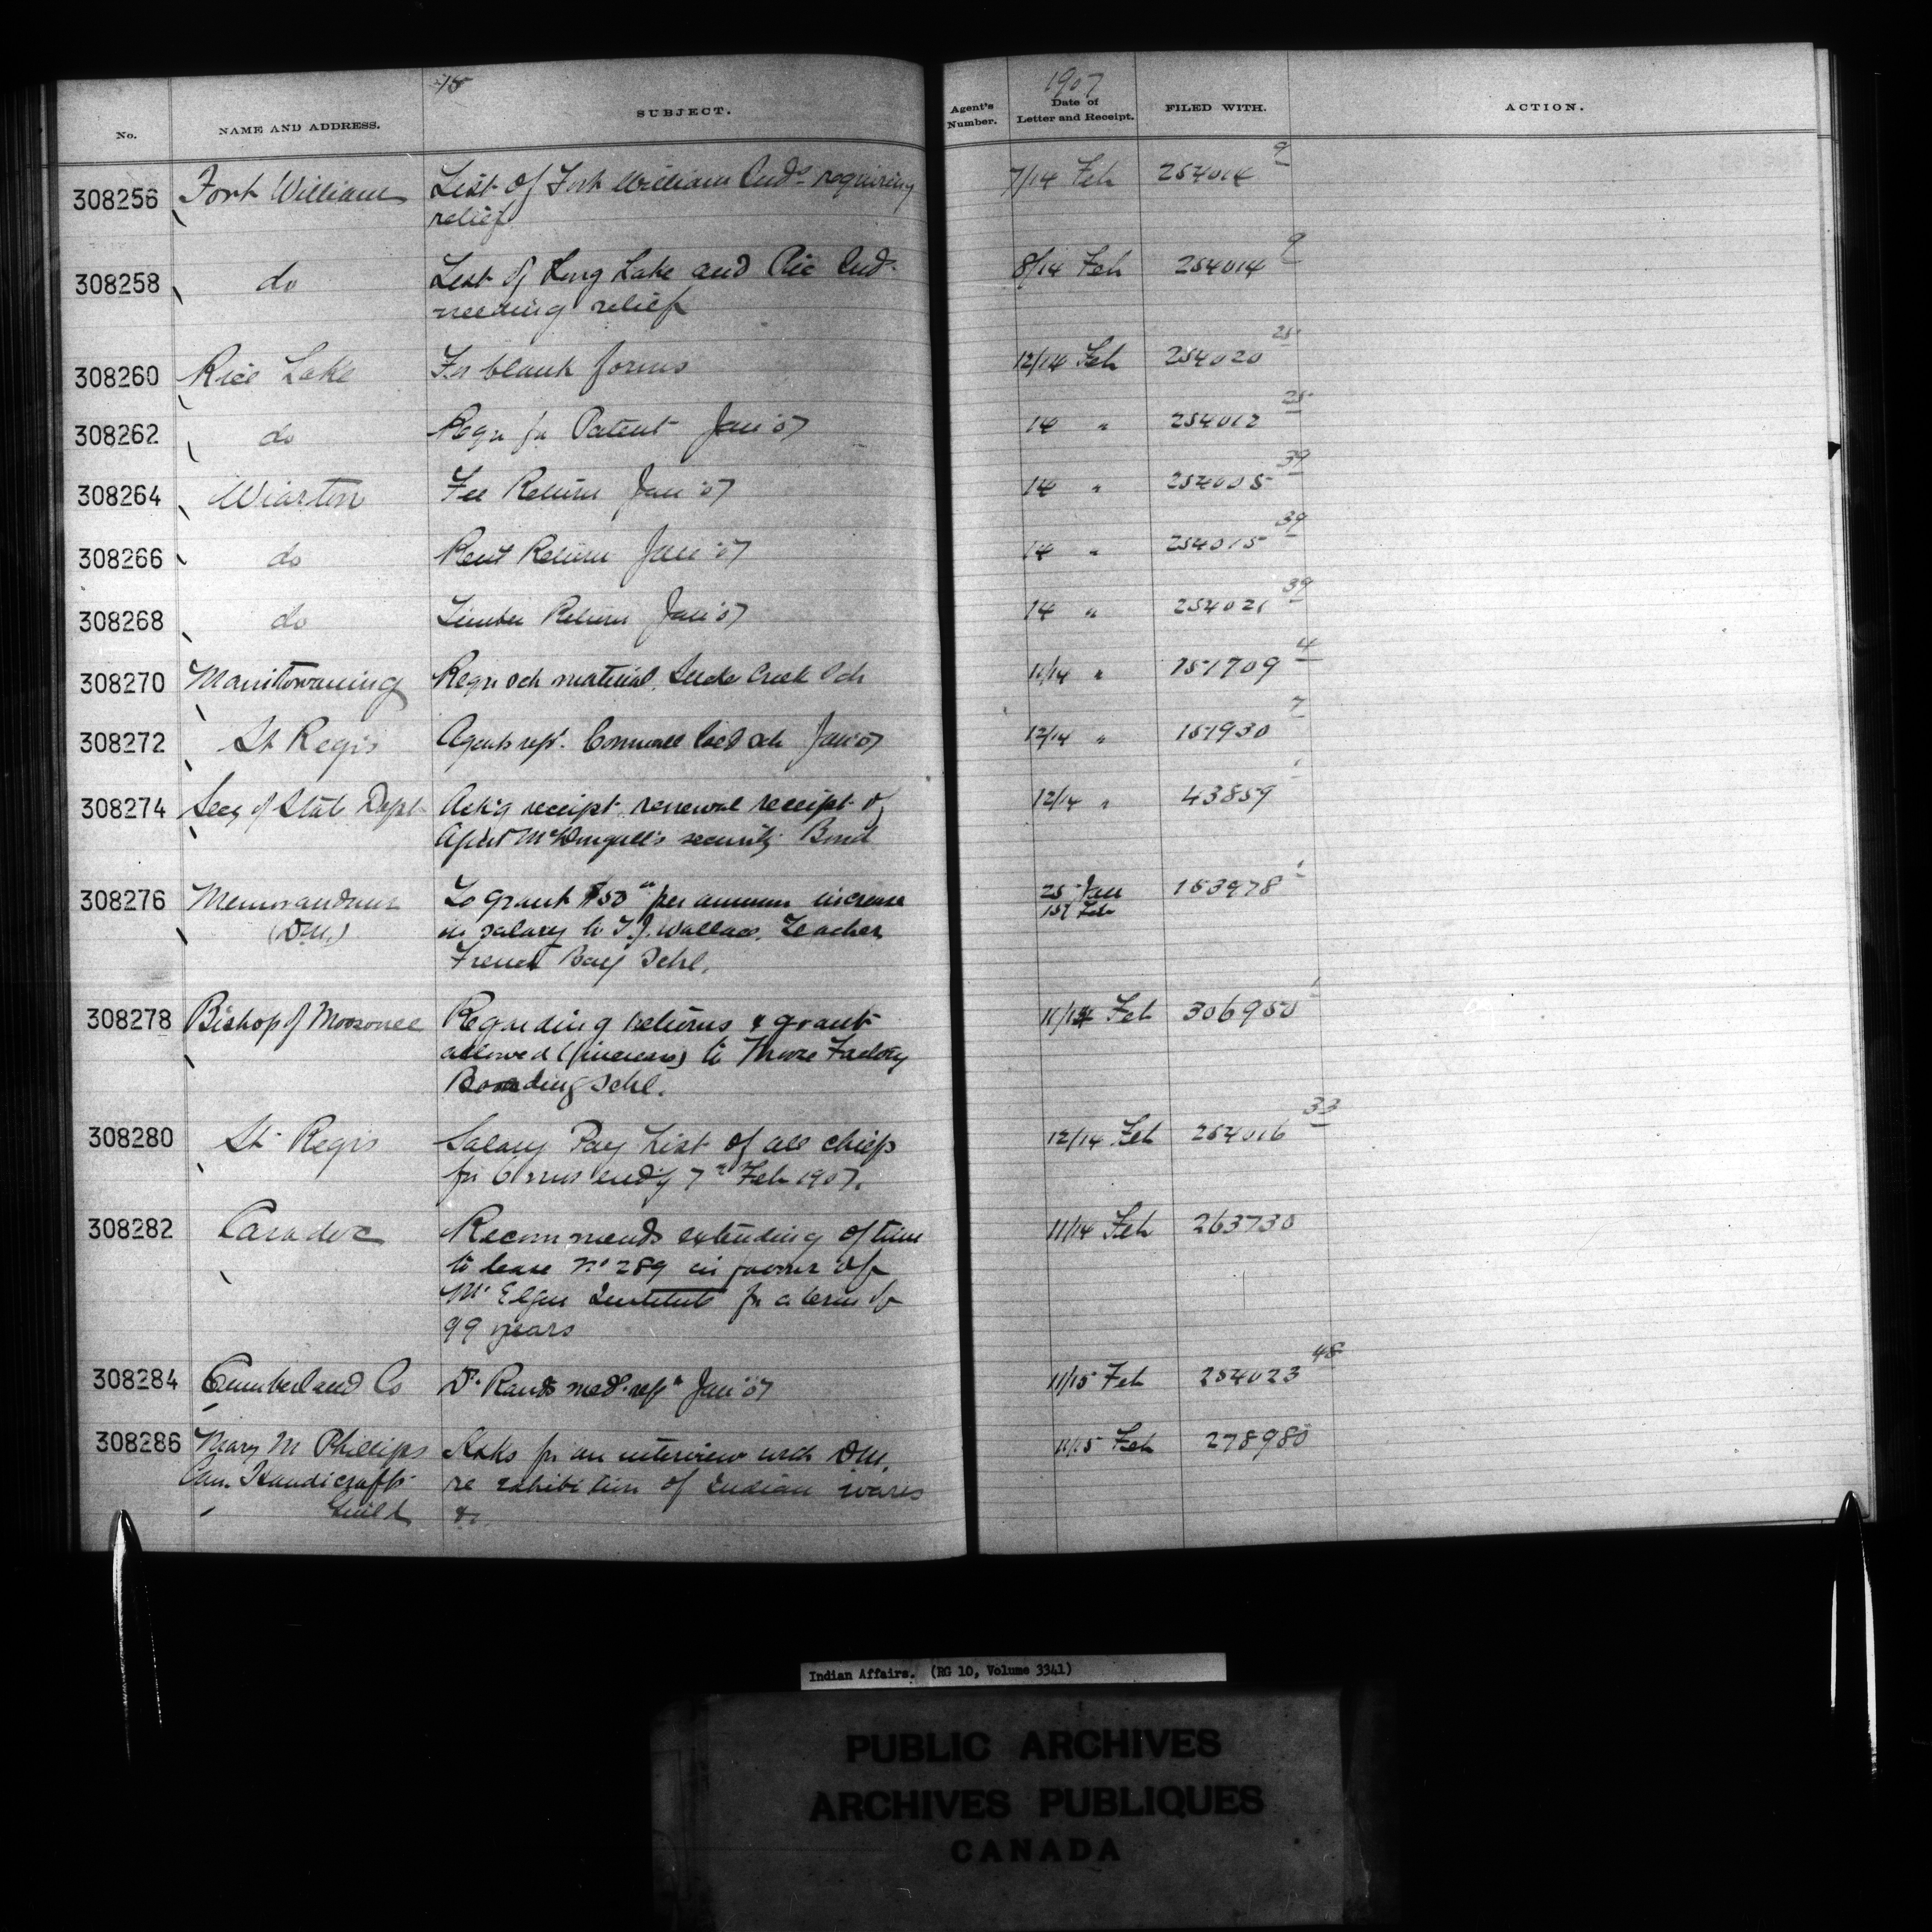 15
1907
No. NAME AND ADDRESS. SUBJECT. Agent's Number. Date of Letter and Receipt. FILED WITH. ACTION.
308256 Fort William List of Fort William Inds requiring 7/14 Feb 254014 9
relief
308258 do List of Long Lake and Pic Inds 8/14 Feb 254014 9
needing relief
308260 Rice Lake For blank forms 12/14 Feb 254020 25
308262 do Reqn for Patent Jan '07 14 " 254012 25
308264 Wiarton Fee Return Jan '07 14 " 254005 39
308266 do Rent Return Jan '07 14 " 254015 39
308268 do Timber Return Jan '07 14 " 254021 39
308270 Manitowaning Reqn sch material Creek Sch 11/14 " 151709 4
308272 St Regis Agents rept. Cornwall Isld sch Jan '07 12/14 " 151930 7
308274 Secy of State Dept Ack'g receipt renewal receipt of 12/14 " 43859
Agent McDougall's security Bond
308276 Memorandum To grant $50 per annum increase 25 Jan 153978 1
(D.M.) in salary to T.J. Wallace, Teacher 15 Feb
French Bay Schl.
308278 Bishop of Moosonee Regarding returns & grant 11/14 Feb 306950 1
allowed (increase) to Moose Factory
Boarding Schl.
308280 St. Regis Salary Pay List of all chiefs 12/14 Feb 254016 33
for 6 mns end'g 7th Feb 1907.
308282 Caradoc Recommends extending of time 11/14 Feb 263730
to lease No 289 in favour of
Mt Elgin Institute for a term of
99 years
308284 Cumberland Co Dr. Rands med. rept Jan '07 11/15 Feb 254023 48
308286 Mary M Phillips Asks for an interview with D.M. 11/15 Feb 278980
Can. Handicrafts re exhibition of Indian wares
Guild &c.
Indian Affairs. (RG 10, Volume 3341)
PUBLIC ARCHIVES
ARCHIVES PUBLIQUES
CANADA